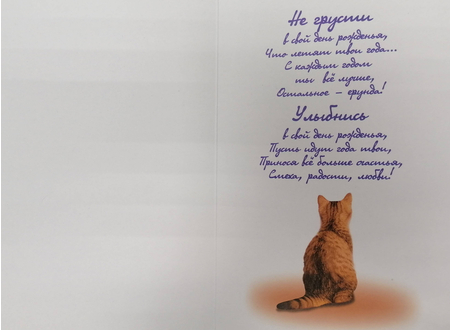 Не грусти
в свой день рожденья,
Что летят твои года...
С каждым годом
ты всё лучше,
Остальное – ерунда!
Улыбнись
в свой день рожденья,
Пусть идут года твои,
Принося всё больше счастья,
Смеха, радости, любви!